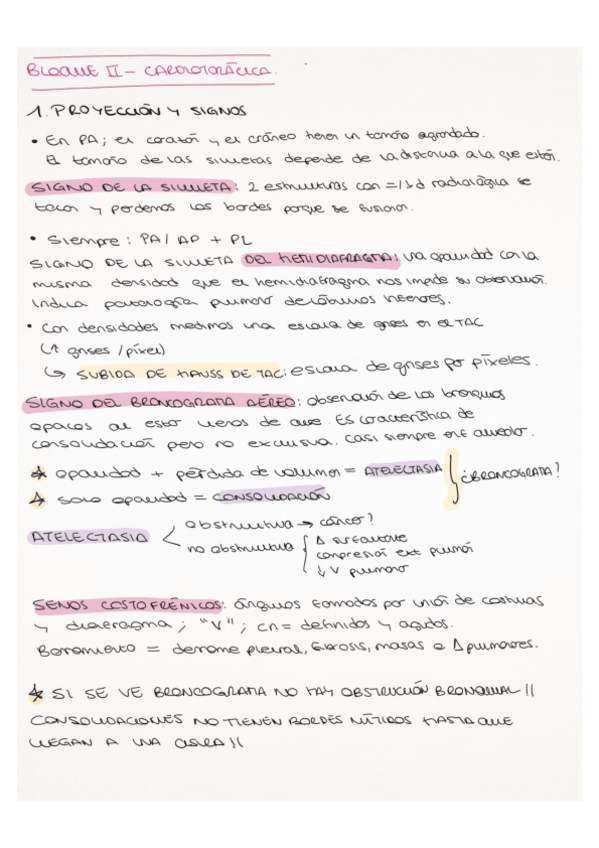 BLOQUE II - CARDIOTORÁCICA.
1. PROYECCIÓN Y SIGNOS
• En PA; el corazón y el cráneo tienen un tamaño agrandado.
El tamaño de las siluetas depende de la distancia a la que estén.
SIGNO DE LA SILUETA: 2 estructuras con = / s d radiológica se
tocan y perdemos los bordes porque se fusionan.
• Siempre: PA / AP + PL
SIGNO DE LA SILUETA DEL HEMIDIAFRAGMA: una opacidad con la
misma densidad que el hemidiafragma nos impide su observación.
Indica patología pulmonar de lóbulos inferiores.
• Con densidades medimos una escala de grises en el TAC
(↑ grises / píxel)
↳ SUBIDA DE HAUSS DE TAC: escala de grises por píxeles.
SIGNO DEL BRONCOGRAMA AÉREO: observación de los bronquios
opacos al estar llenos de aire. Es característica de
consolidación pero no exclusiva. Casi siempre enf alveolar.
☆ opacidad + pérdida de volumen = ATELECTASIA
☆ solo opacidad = CONSOLIDACIÓN
} ¿BRONCOGRAMA?
ATELECTASIA < obstructiva → cáncer?
no obstructiva { Δ surfactante
compresión ext pulmón
↓ V pulmonar
SENOS COSTOFRÉNICOS: ángulos formados por unión de costillas
y diafragma; "V"; cn = definidos y agudos.
Borramiento = derrame pleural, fibrosis, masas o Δ pulmonares.
☆ SI SE VE BRONCOGRAMA NO HAY OBSTRUCCIÓN BRONQUIAL //
CONSOLIDACIONES NO TIENEN BORDES NÍTIDOS HASTA QUE
LLEGAN A UNA CISURA //